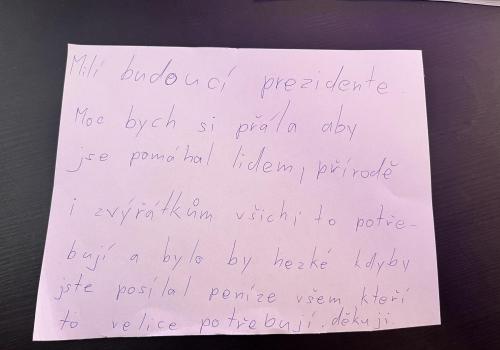 Milí budoucí prezidente.
Moc bych si přála aby
jse pomáhal lidem, přírodě
i zvýřátkům všichi to potře-
bují a bylo by hezké kdyby
jste posílal peníze všem kteří
to velice potřebují. děkuji.